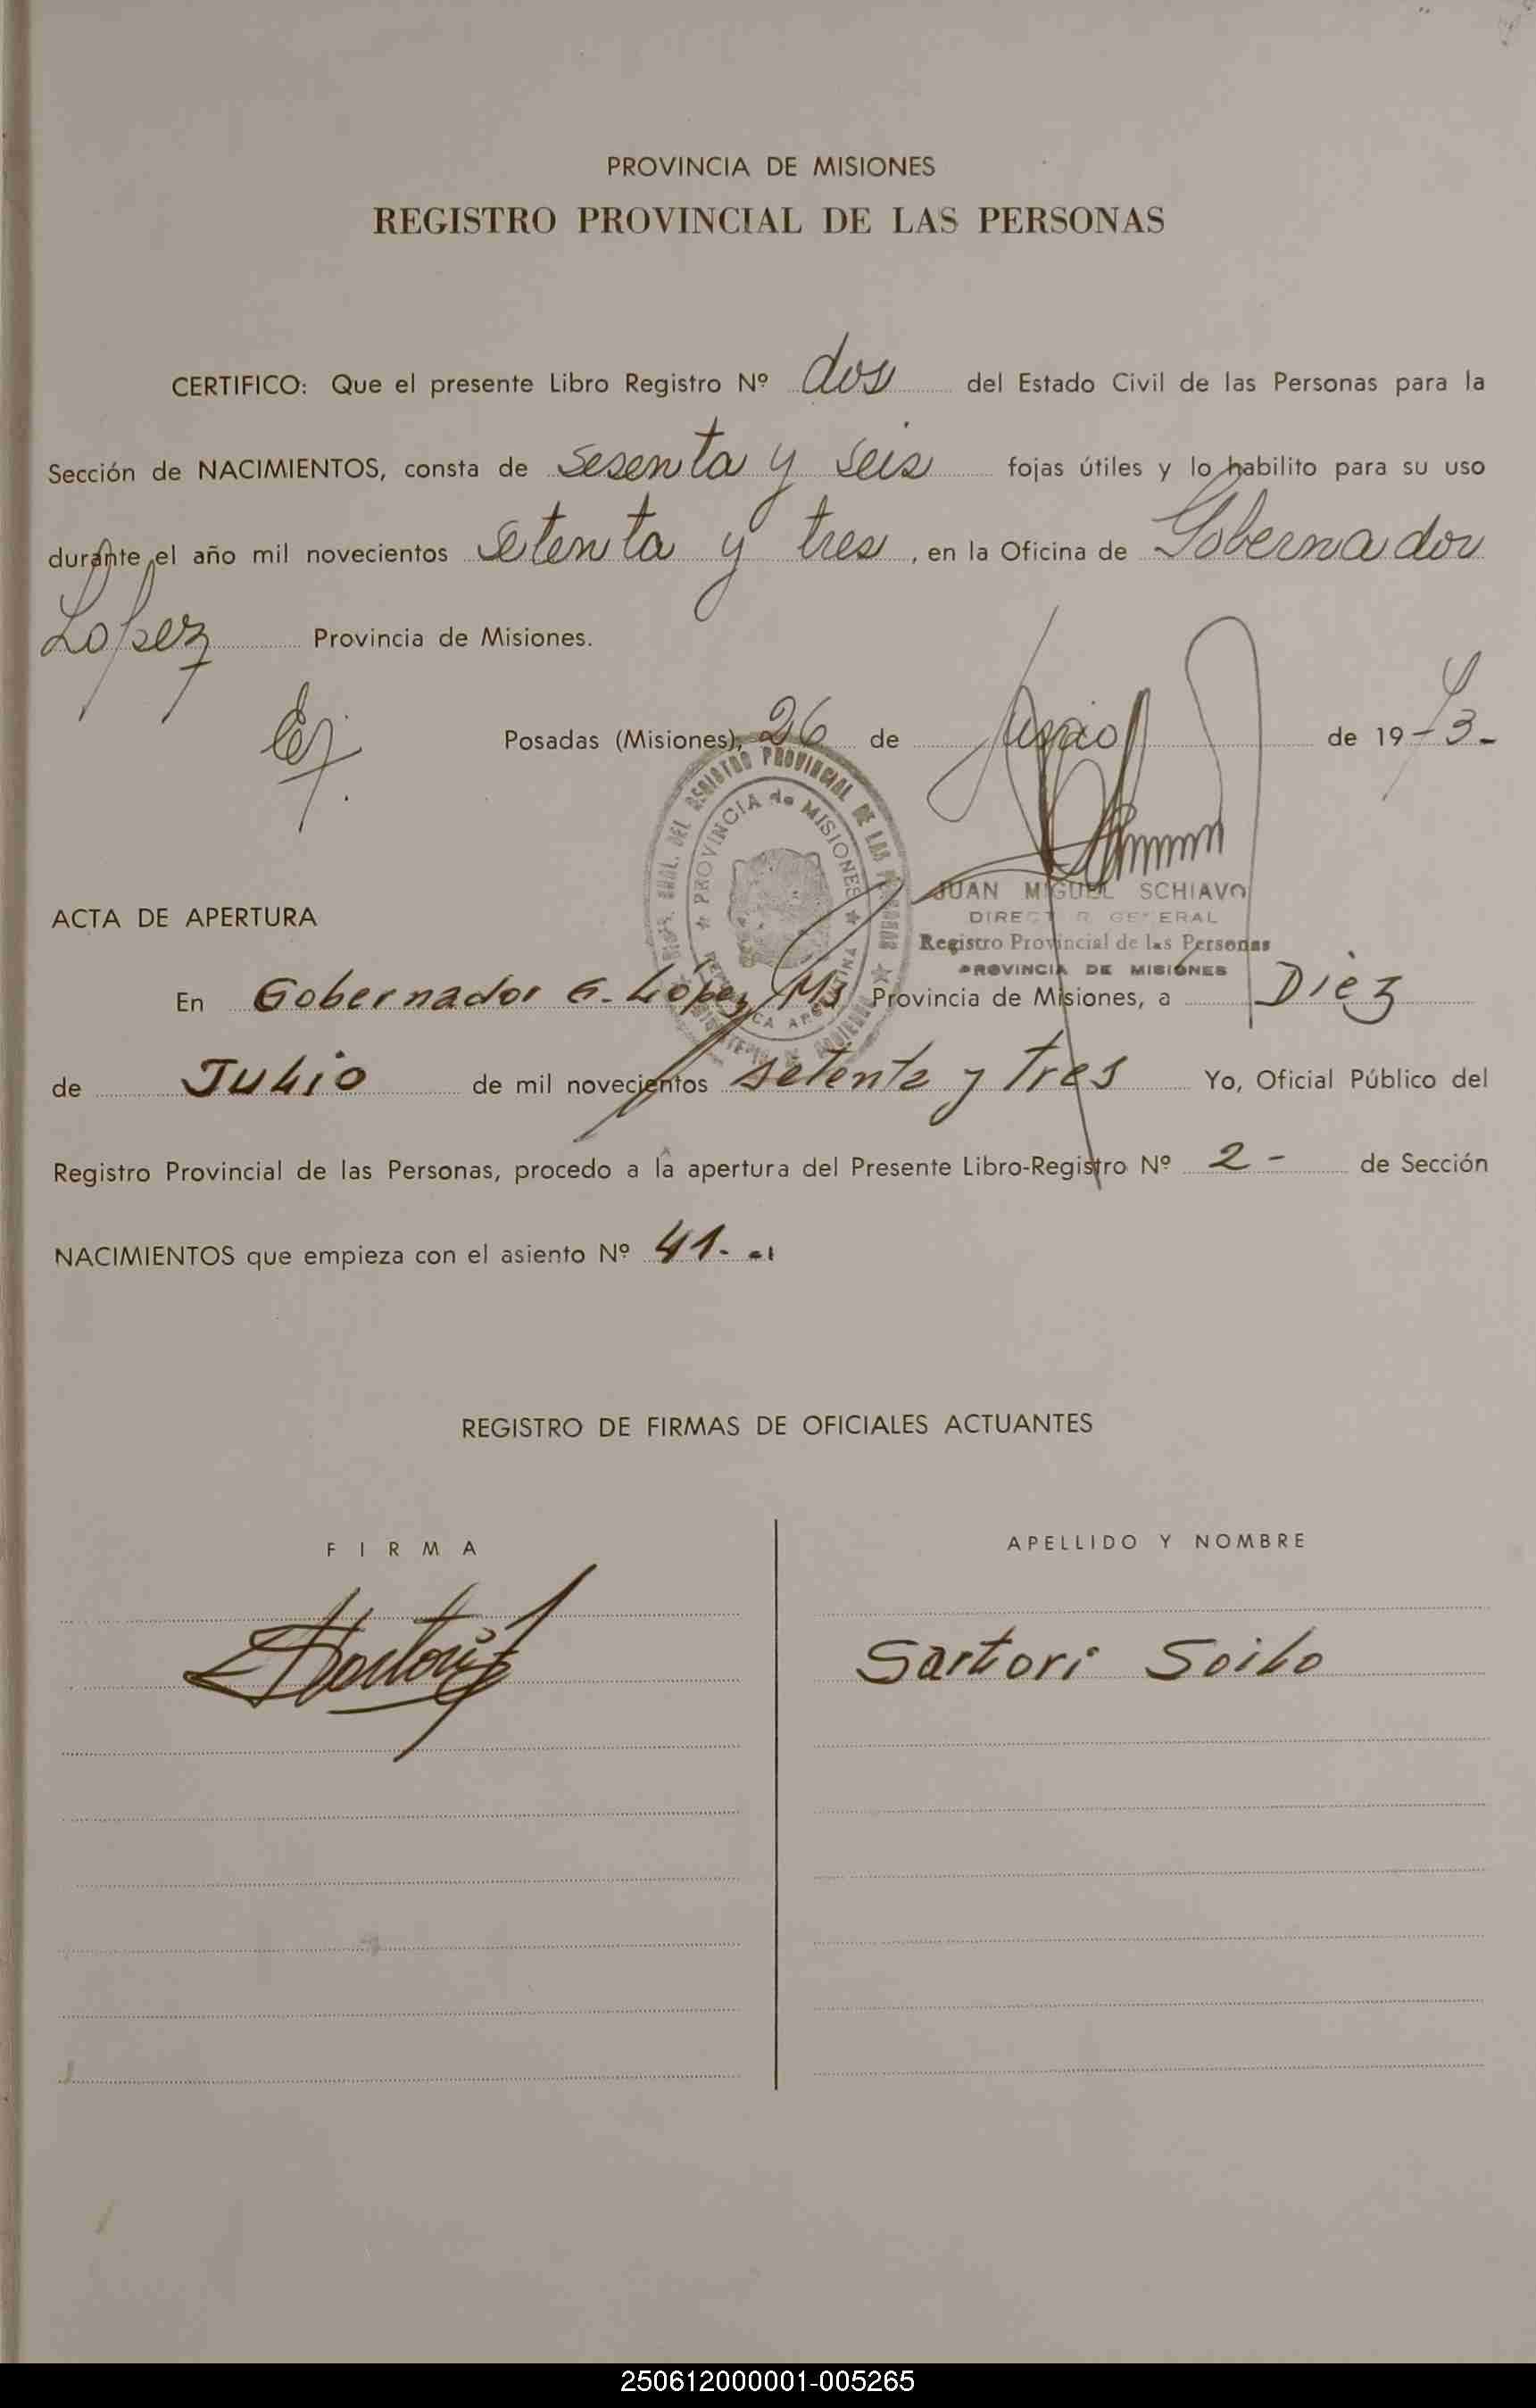 PROVINCIA DE MISIONES
REGISTRO PROVINCIAL DE LAS PERSONAS
CERTIFICO: Que el presente Libro Registro Nº dos del Estado Civil de las Personas para la
Sección de NACIMIENTOS, consta de sesenta y seis fojas útiles y lo habilito para su uso
durante el año mil novecientos setenta y tres, en la Oficina de Gobernador
Lopez Provincia de Misiones.
Posadas (Misiones), 26 de Junio de 1973-
PROVINCIA de MISIONES
JUAN MIGUEL SCHIAVO
DIRECTOR GENERAL
Registro Provincial de las Personas
PROVINCIA DE MISIONES
ACTA DE APERTURA
En Gobernador G. López Ms Provincia de Misiones, a Diez
de Julio de mil novecientos setenta y tres Yo, Oficial Público del
Registro Provincial de las Personas, procedo a la apertura del Presente Libro-Registro Nº 2 - de Sección
NACIMIENTOS que empieza con el asiento Nº 41.-
REGISTRO DE FIRMAS DE OFICIALES ACTUANTES
FIRMA
APELLIDO Y NOMBRE
Sartori Soilo
250612000001-005265